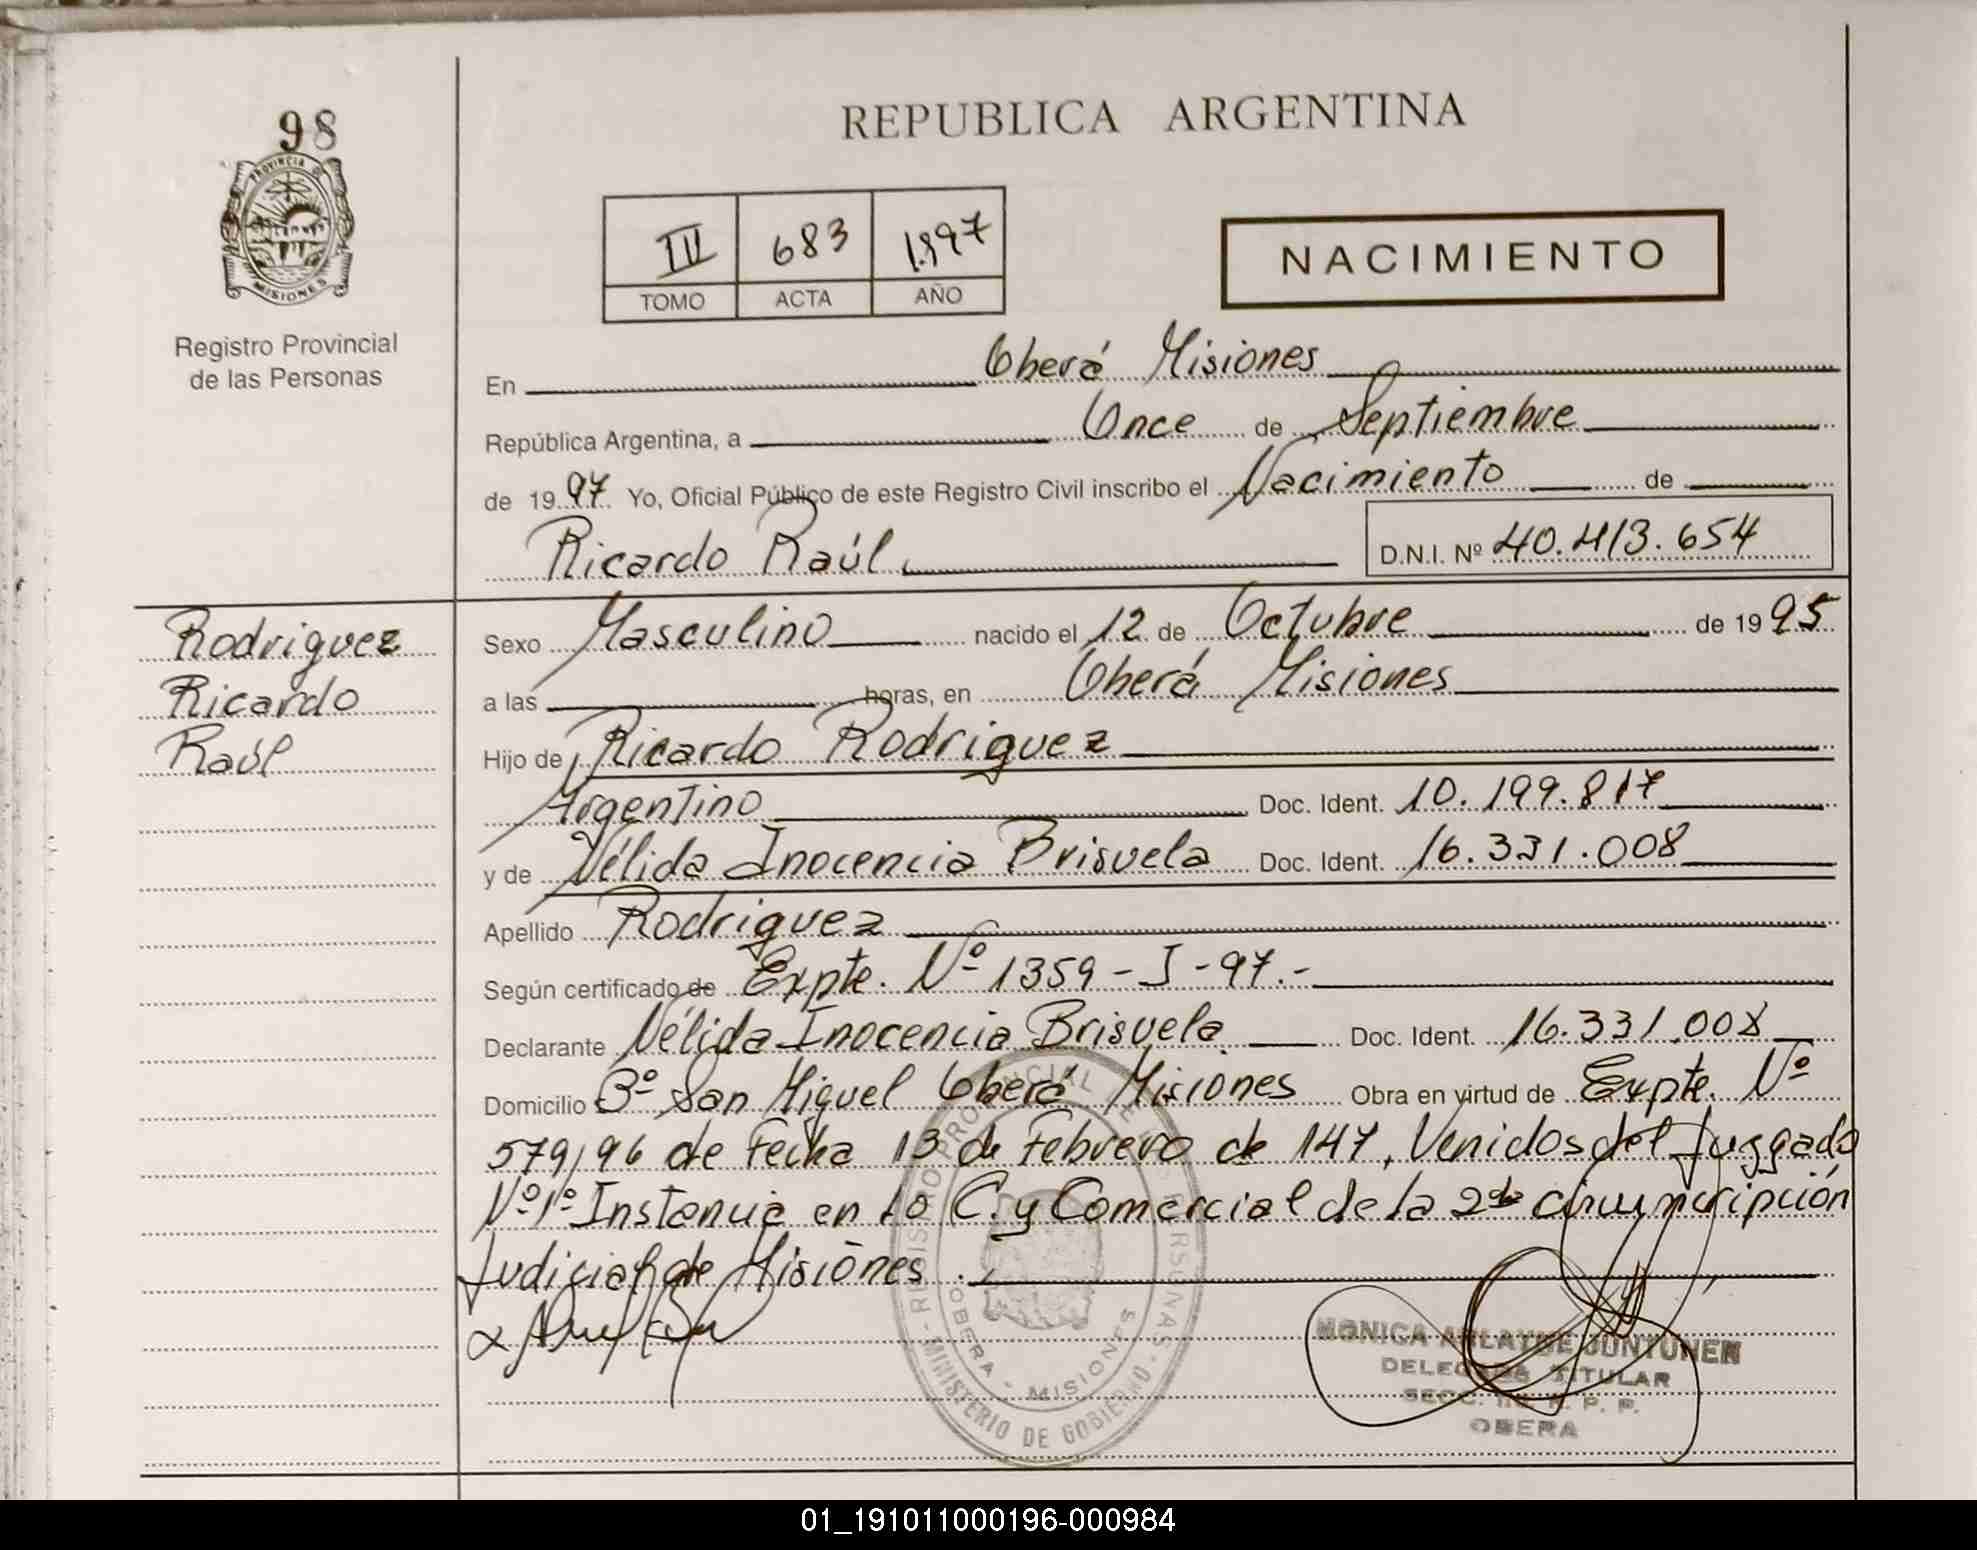 98
PROVINCIA DE
MISIONES
Registro Provincial
de las Personas
REPUBLICA ARGENTINA
III 683 1.997
TOMO ACTA AÑO
NACIMIENTO
En Oberá Misiones
República Argentina, a Once de Septiembre
de 1997 Yo, Oficial Público de este Registro Civil inscribo el Nacimiento de
Ricardo Raúl. D.N.I. Nº 40.413.654
Rodriguez
Ricardo
Raúl
Sexo Masculino nacido el 12 de Octubre de 1995
a las horas, en Oberá Misiones
Hijo de Ricardo Rodriguez
Argentino Doc. Ident. 10.199.817
y de Nélida Inocencia Brisuela Doc. Ident. 16.331.008
Apellido Rodriguez
Según certificado de Expte. Nº 1359-I-97.-
Declarante Nélida Inocencia Brisuela. Doc. Ident. 16.331.008
Domicilio Bº San Miguel Oberá Misiones Obra en virtud de Expte. Nº
579/96 de Fecha 13 de Febrero de 147, Venidos del Juzgado
Nº 1º Instancia en lo C. y Comercial de la 2da
Judicial de Misiones.
REGISTRO PROVINCIAL DE PERSONAS
MINISTERIO DE GOBIERNO
OBERA - MISIONES
MONICA JUNTUNEN
DELEGADA TITULAR
SECC. R. P. P.
OBERA
01_191011000196-000984